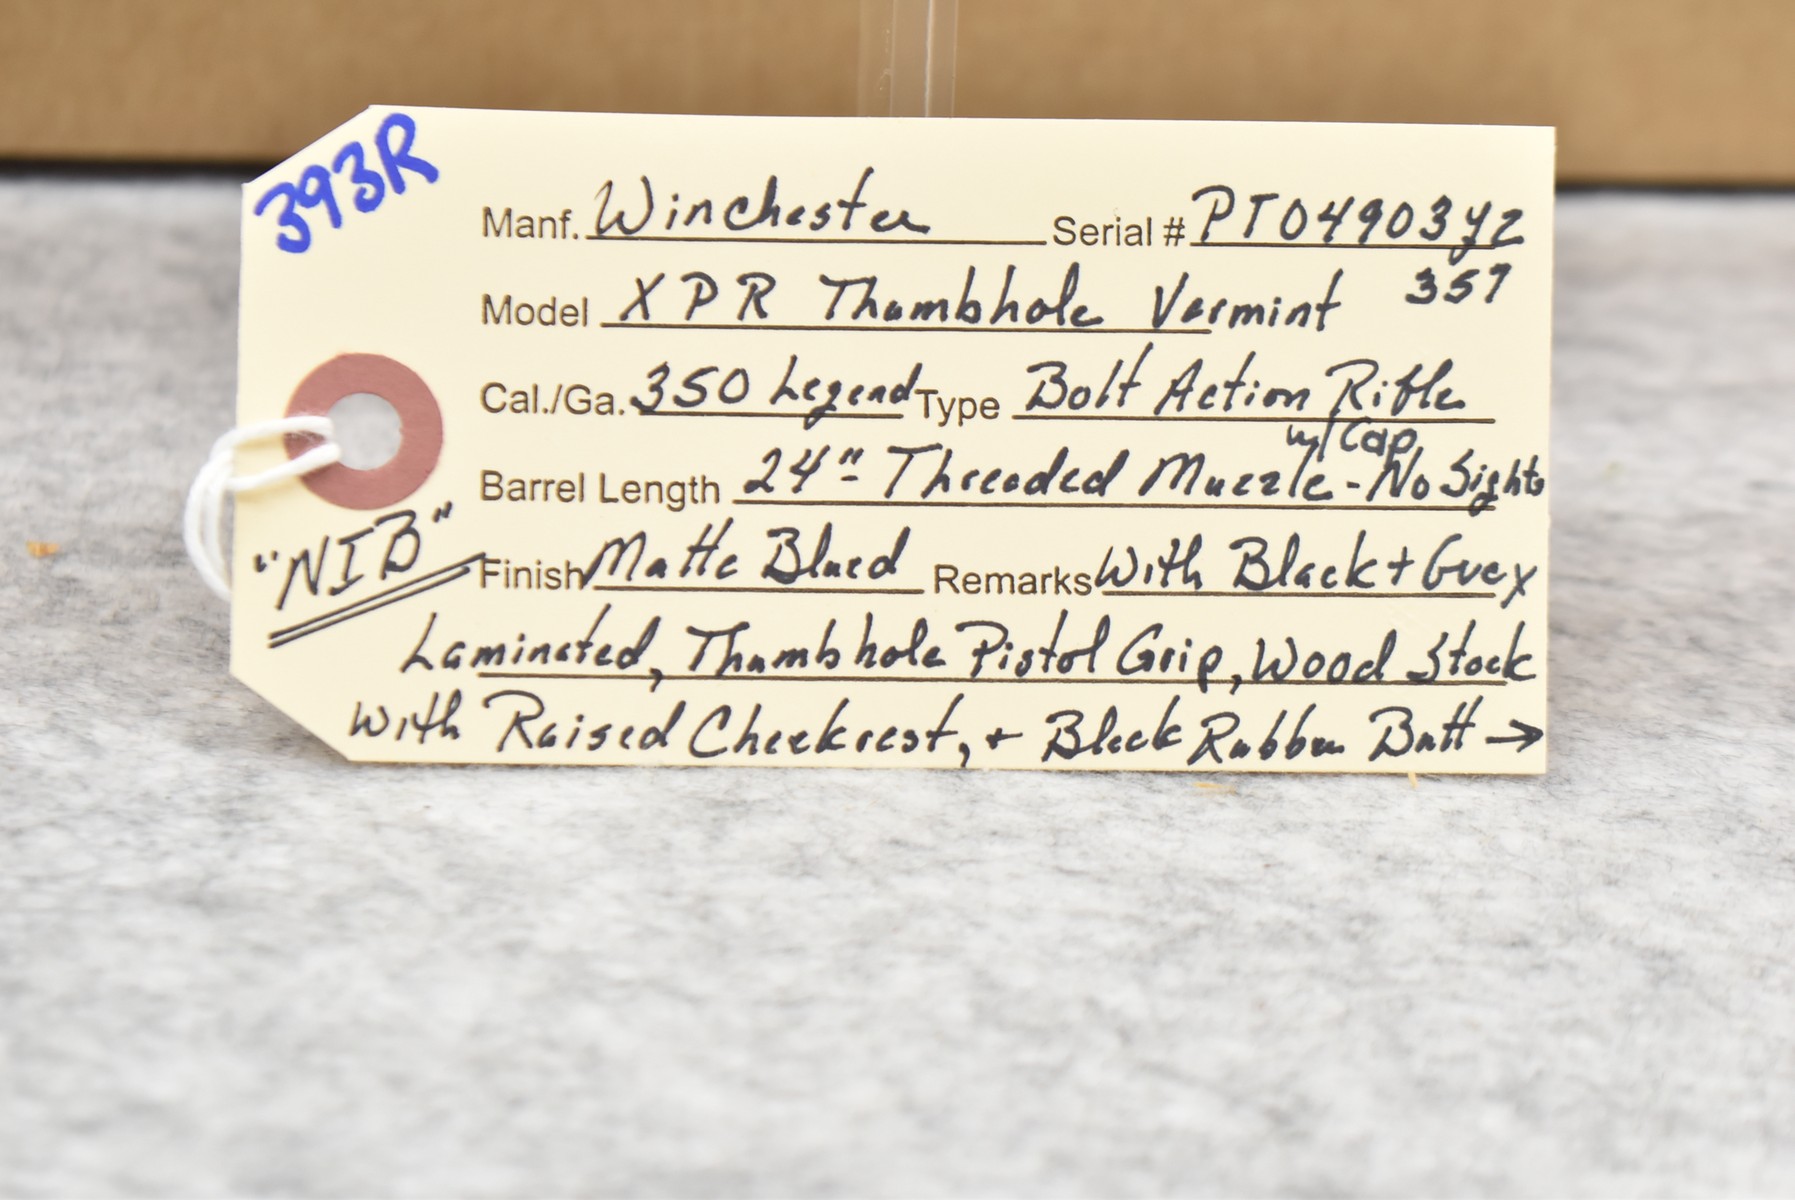 393R
Manf. Winchester Serial # PT04903YZ
357
Model XPR Thumbhole Varmint
Cal./Ga. 350 Legend Type Bolt Action Rifle
w/ Cap
Barrel Length 24" Threaded Muzzle - No Sights
"NIB"
Finish Matte Blued Remarks With Black + Grey
Laminated, Thumbhole Pistol Grip, Wood Stock
with Raised Cheekrest, + Black Rubber Butt →